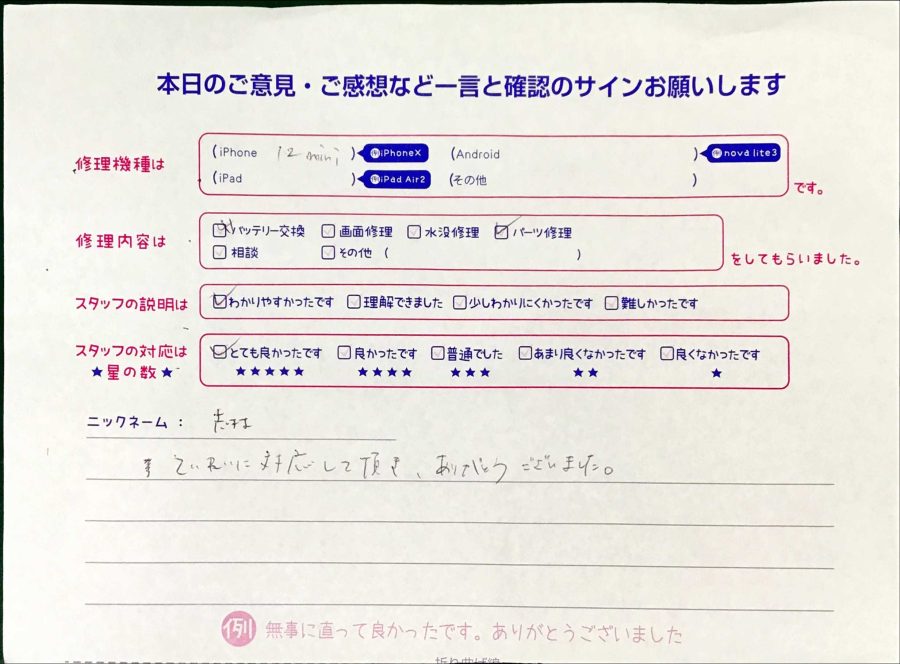 本日のご意見・ご感想など一言と確認のサインお願いします
修理機種は (iPhone 12 mini ) 例iPhoneX (Android ) 例nova lite3
(iPad ) 例iPad Air2 (その他 ) です。
修理内容は バッテリー交換 画面修理 水没修理 パーツ修理
相談 その他 ( ) をしてもらいました。
スタッフの説明は わかりやすかったです 理解できました 少しわかりにくかったです 難しかったです
スタッフの対応は とても良かったです 良かったです 普通でした あまり良くなかったです 良くなかったです
★星の数★ ★★★★★ ★★★★ ★★★ ★★ ★
ニックネーム：
ていねいに対応して頂き、ありがとうございました。
例 無事に直って良かったです。ありがとうございました